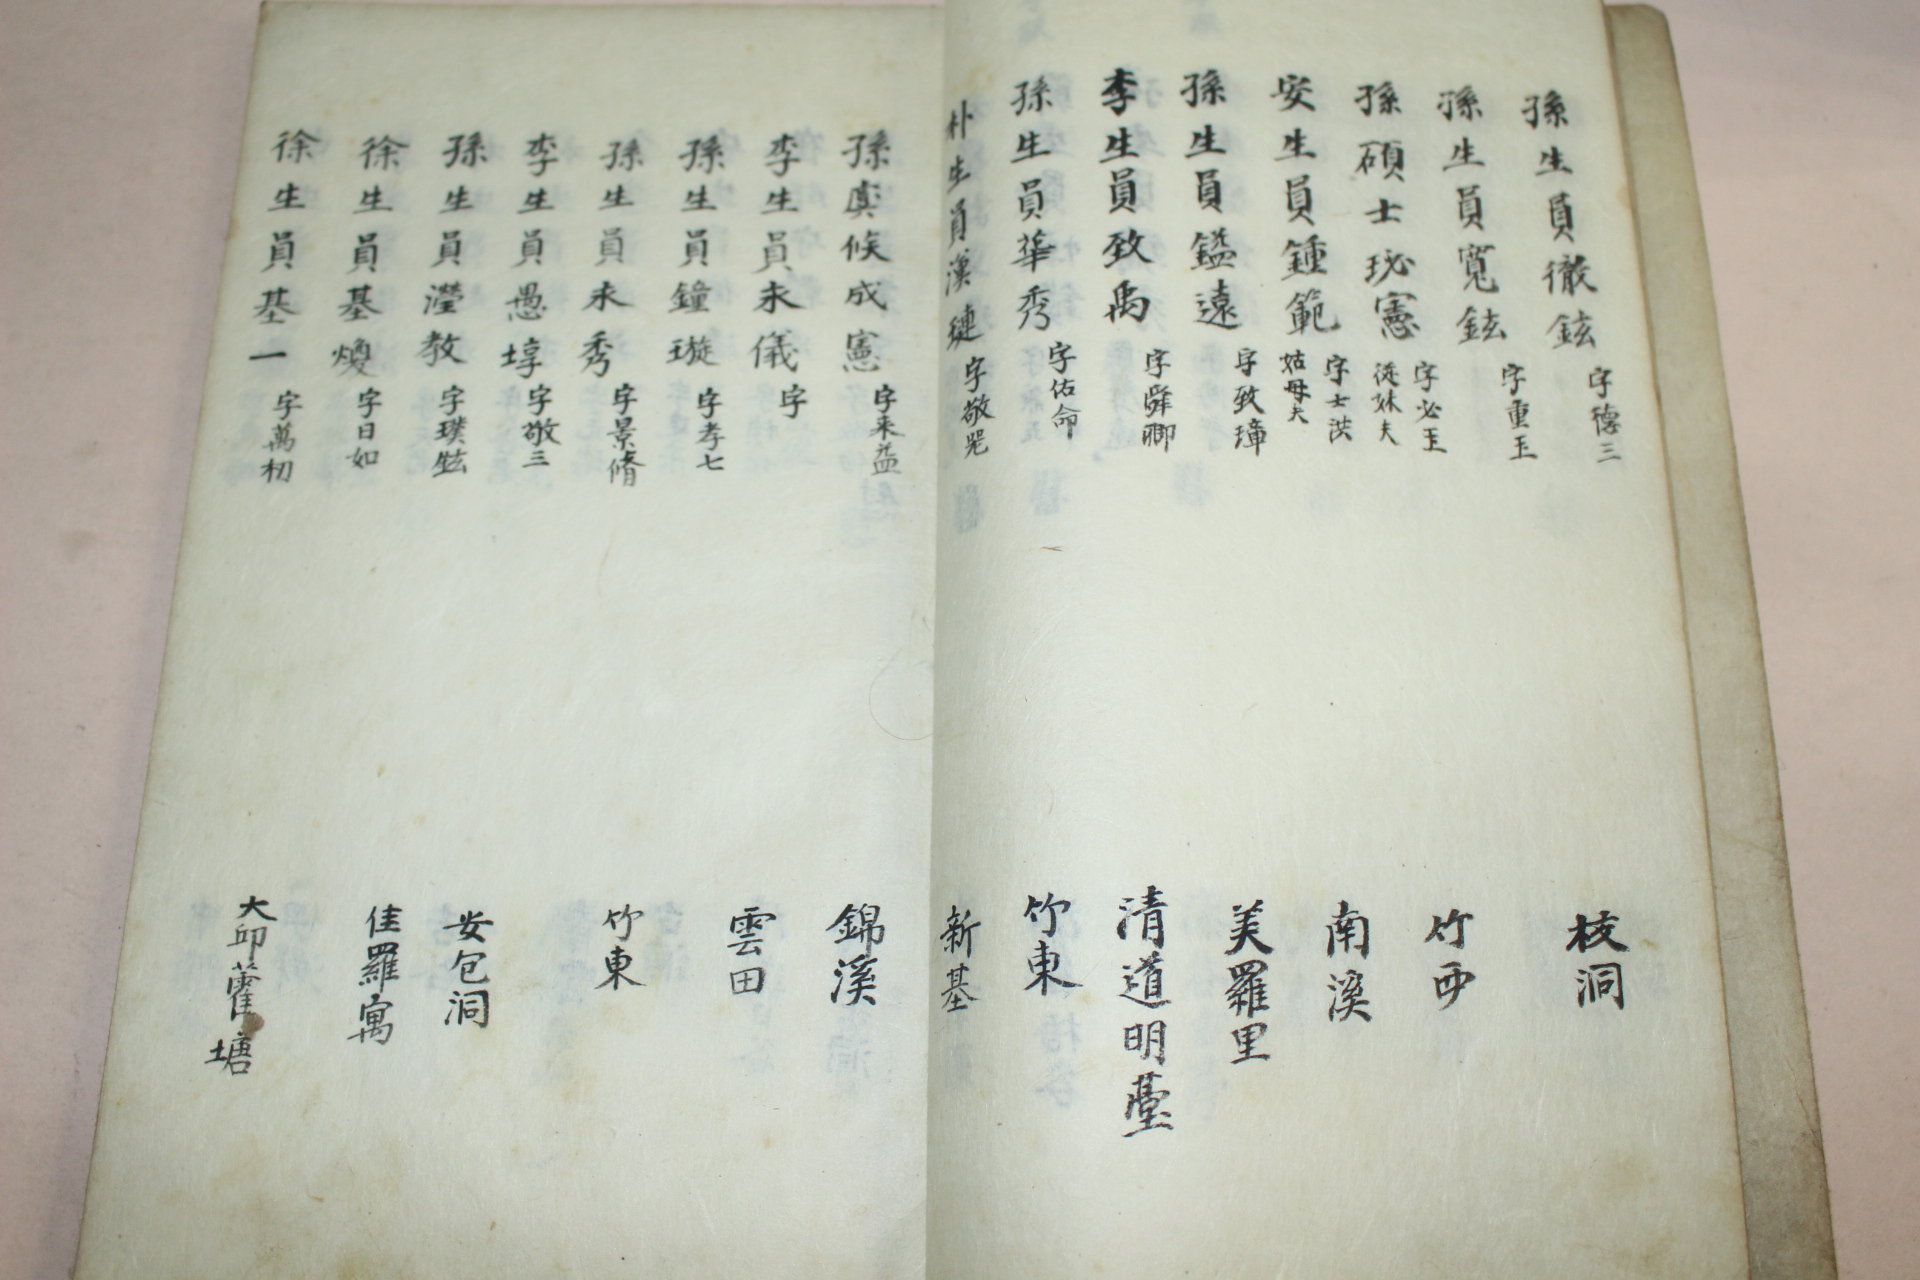 孫生員徹鉉 字德三 枝洞
孫生員寬鉉 字重玉
孫碩士珌憲 字必玉 從妹夫 竹西
安生員鍾範 字士洪 姑母夫 南溪
孫生員鎰遠 字致璋 美羅里
李生員致禹 字舜卿 清道明臺
孫生員華秀 字佑命 竹東
朴生員漢璉 字敬 新基
孫虞候成憲 字來益 錦溪
李生員永儀 字 雲田
孫生員鐘璇 字孝七
孫生員永秀 字景脩 竹東
李生員愚埻 字敬三
孫生員瀅教 字璞 安包洞
徐生員基煥 字日如 佳羅寓
徐生員基一 字萬初 大邱藿塘